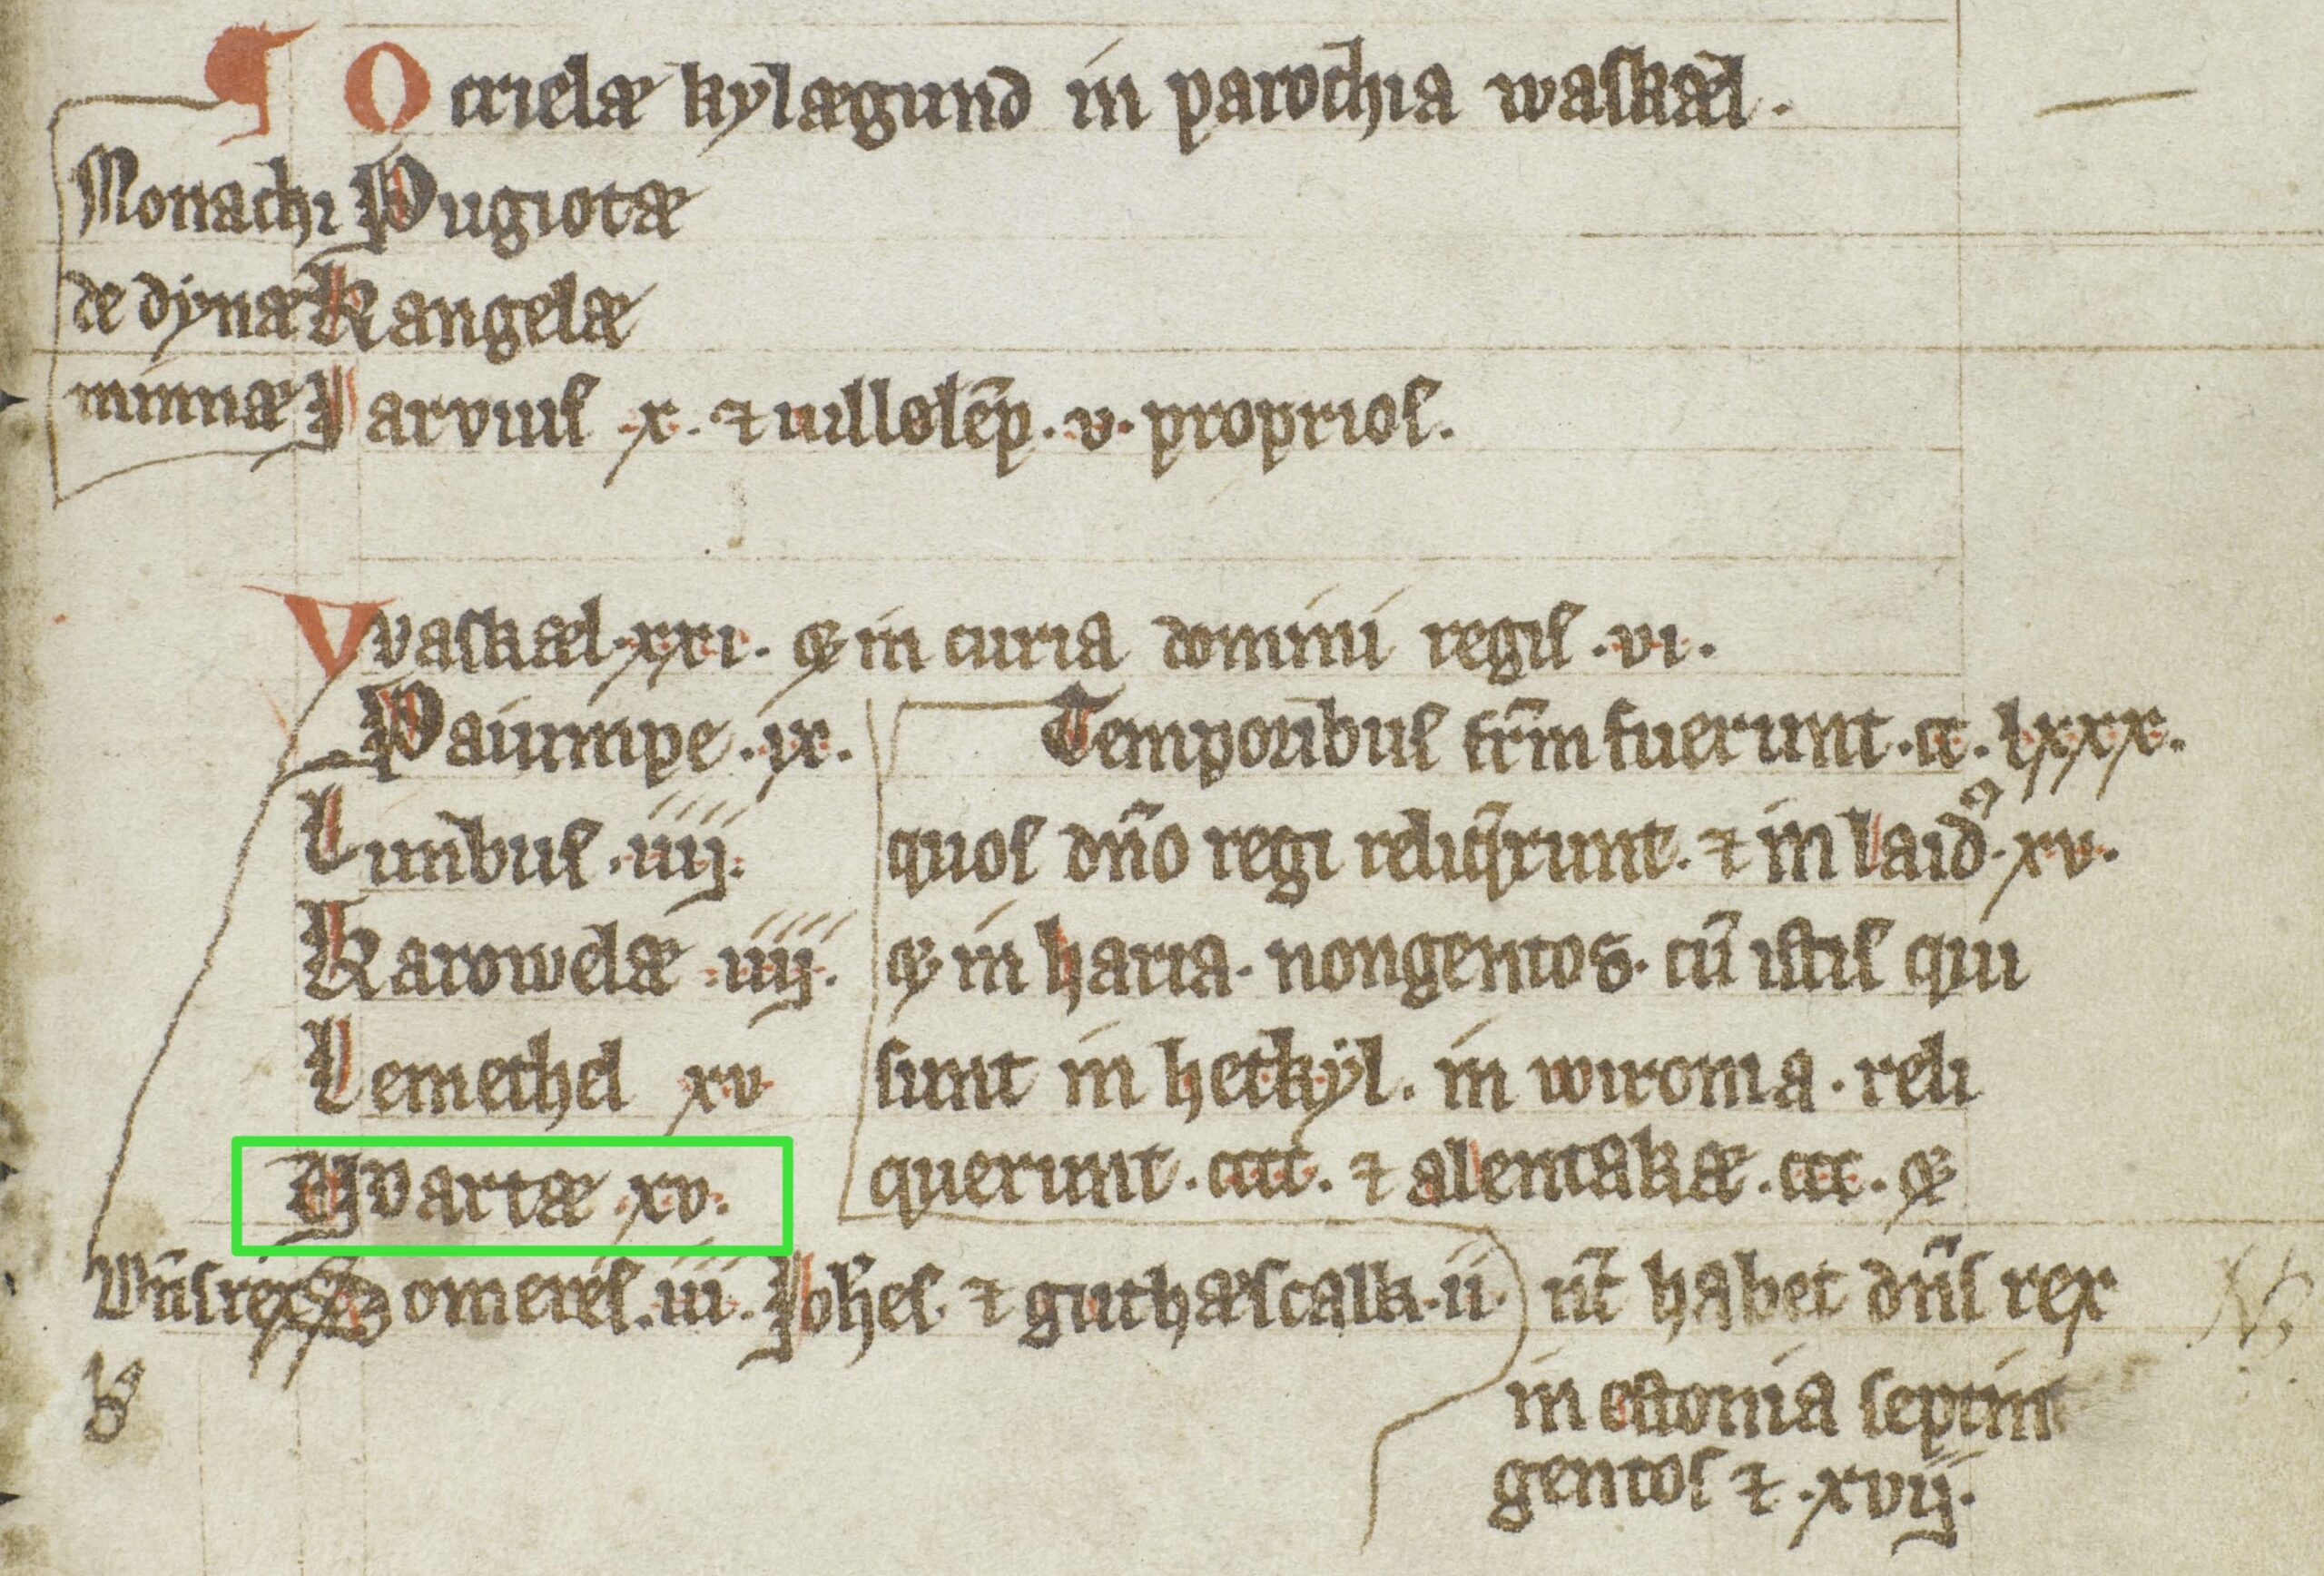 Ocrielæ kylægund in parochia waskæl.
Monachi Pugiotæ
de dynæ Rangelæ
minnæ Jarvius .x. ⁊ uillolēp. v. proprios.
Vvaskæl .xxi. ꝙ in curia domini regis .vi.
Paiumpe .ix.
Lumbus .iiij.
Karowelæ .iiij.
Lemethel xv
Yvartæ .xv.
Dn̄s rex Someres .iii. Joh̄es ⁊ guthæscalk .ii.
Temporibus fr̄m fuerunt .cc. lxxx.
quos dn̄o regi reliq̄runt. ⁊ in laid᷒. xv.
ꝙ in haria. nongentos. cū istis qui
sunt in hetkyl. in wironia. reli
querunt .cccc. ⁊ alentakæ .ccc. ꝙ
nc̄ habet dn̄s rex
in estonia septin
gentos ⁊ .xvij.